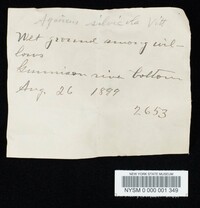 Wet ground among wil-
lows
Gunnison river bottom
Aug. 26 1899
2653
NEW YORK STATE MUSEUM
NYSM 0 000 001 349